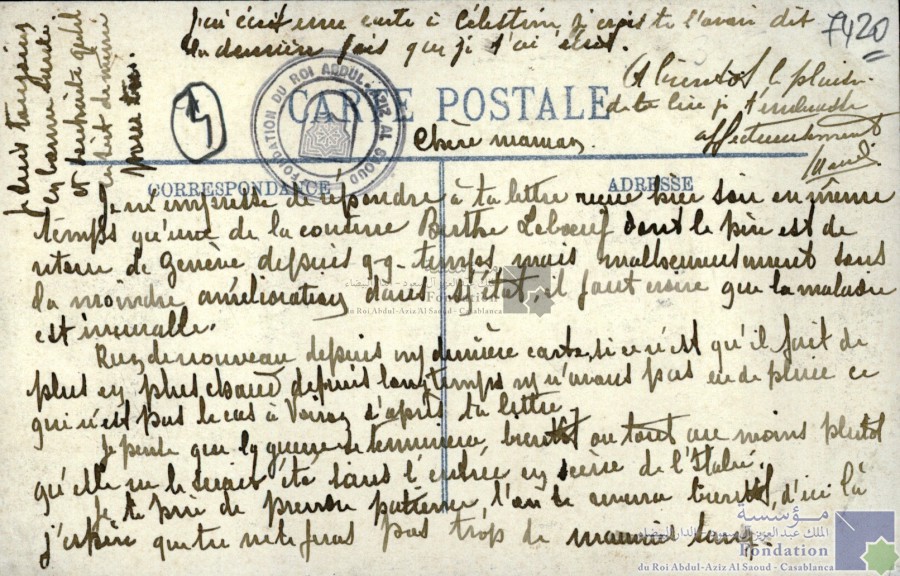 Chère maman.
Je m'empresse de répondre à ta lettre reçue hier soir en même
temps qu'une de la cousine Berthe Leboeuf dont le père est de
retour de Genève depuis q-q- temps, mais malheureusement sans
la moindre amélioration dans s/ état, il faut croire que la maladie
est incurable.
Rien de nouveau depuis my dernière carte, si ce n'est qu'il fait de
plus en plus chaud depuis longtemps ny n'avons pas eu de pluie ce
qui n'est pas le cas à Voiron d'après ta lettre.
Je pense que la guerre se terminera bientôt ou tout au moins plutôt
qu'elle ne le serait été sans l'entrée en scène de l'Italie.
Je te prie de prendre patience, l'an se amena bientôt, d'ici là
j'espère que tu ne te feras pas trop de mauvais sang.
Je suis toujours
en bonne santé
et souhaite qu'il
en soit de même
pour tous
j'ai écrit une carte à Célestin, je crois te l'avoir dit
la dernière fois que je t'ai écrit.
A bientôt le plaisir
de te lire je t'embrasse
affectueusement
7420
4
CARTE POSTALE
CORRESPONDANCE
ADRESSE
FONDATION DU ROI ABDUL-AZIZ AL SAOUD
Fondation
du Roi Abdul-Aziz Al Saoud - Casablanca
مؤسسة
الملك عبد العزيز آل سعود - الدار البيضاء
Fondation
du Roi Abdul-Aziz Al Saoud - Casablanca